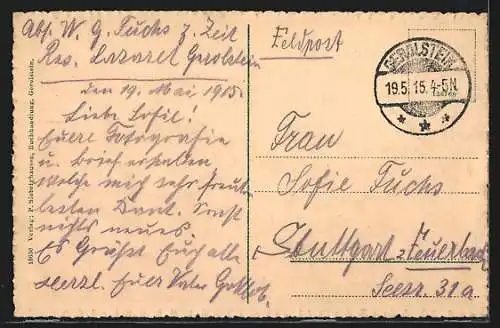 Abs. W. G. Fuchs z. Zeit
Res. Lazaret Gerolstein
den 19. Mai 1915.
Liebe Sofie!
Eure Fotografie
u. Brief erhalten
welche mich sehr freute
besten Dank. Sonst
nichts neues.
Es Grüßt Euch alle
herzl. Euer Vater Gottlob.
Feldpost
GEROLSTEIN
19.5.15.4-5N
Frau
Sofie Fuchs
Stuttgart-Feuerbach
Seestr. 31a
Verlag: P. Niebelshausen, Buchhandlung, Gerolstein.